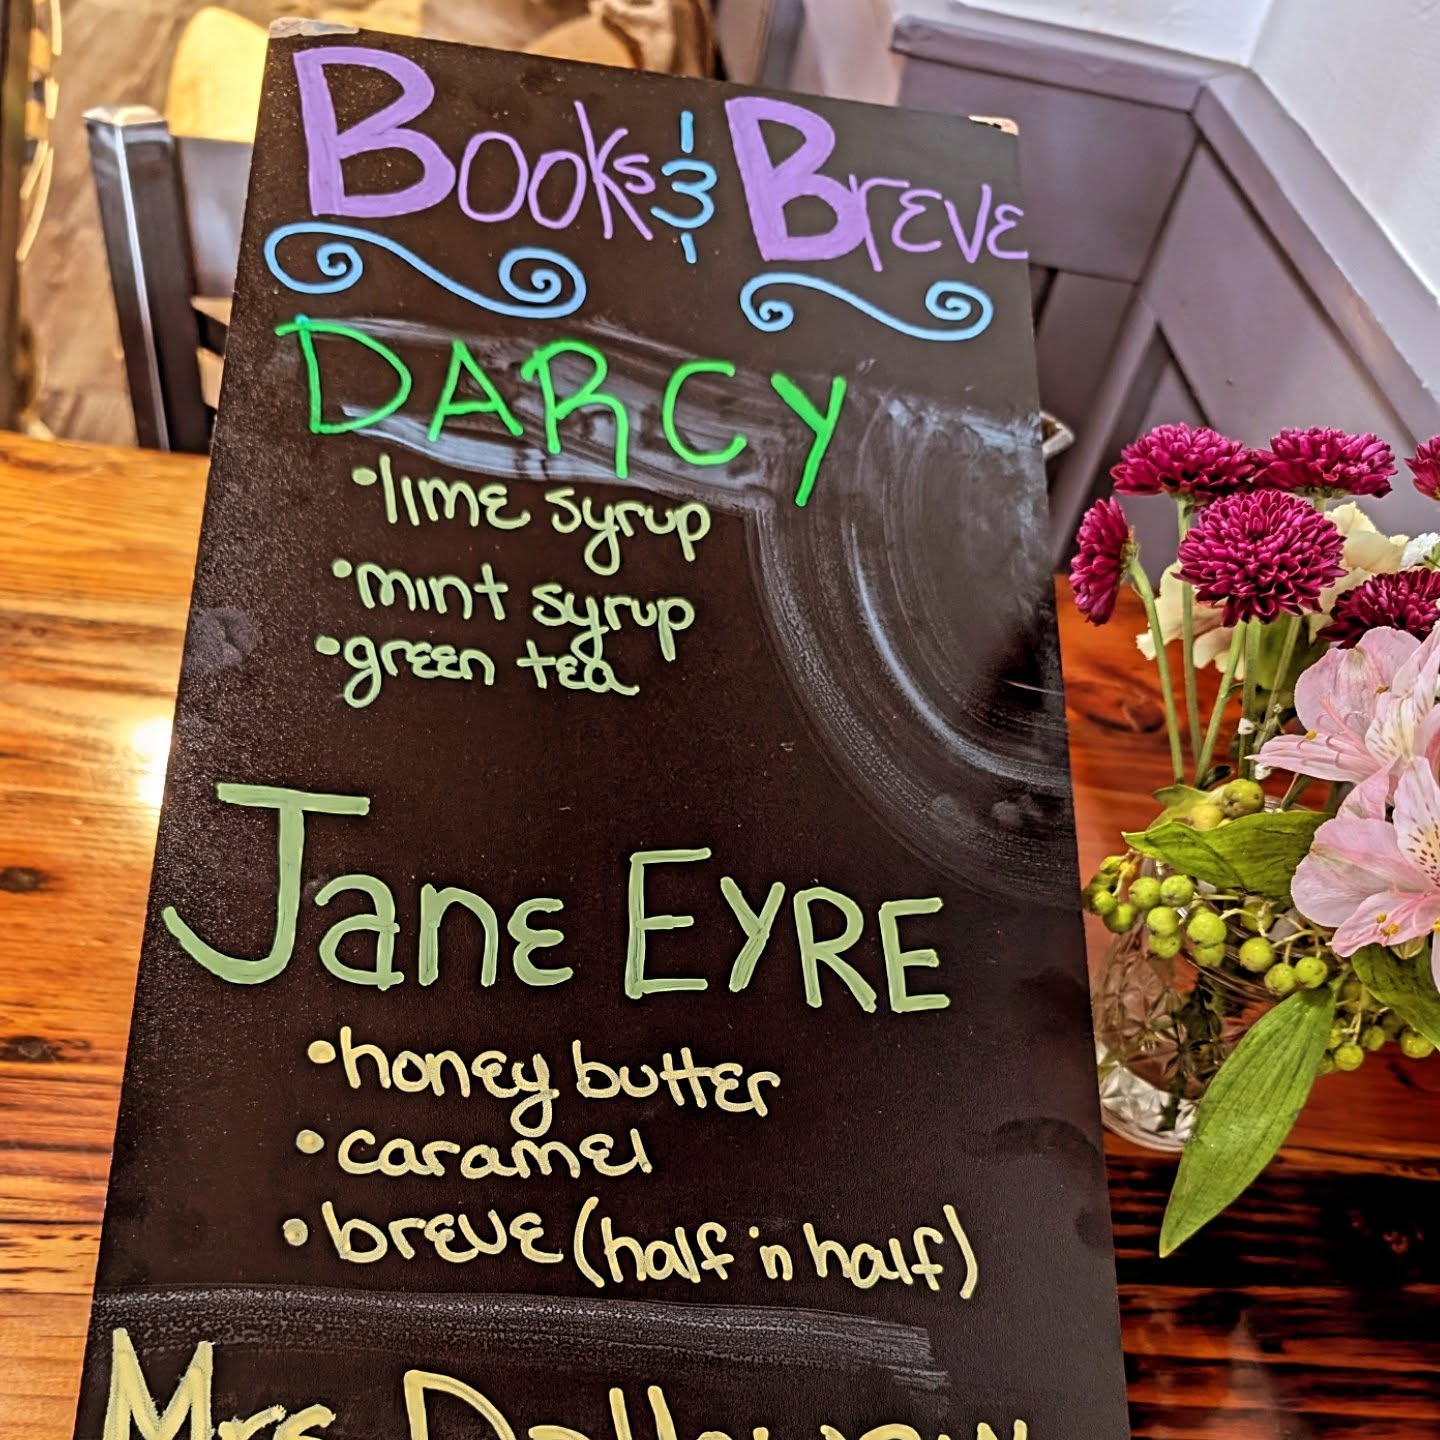 Books & Breve
DARCY
•lime syrup
•mint syrup
•green tea
Jane EYRE
•honey butter
•caramel
•breve (half 'n half)
Mrs Dalloway